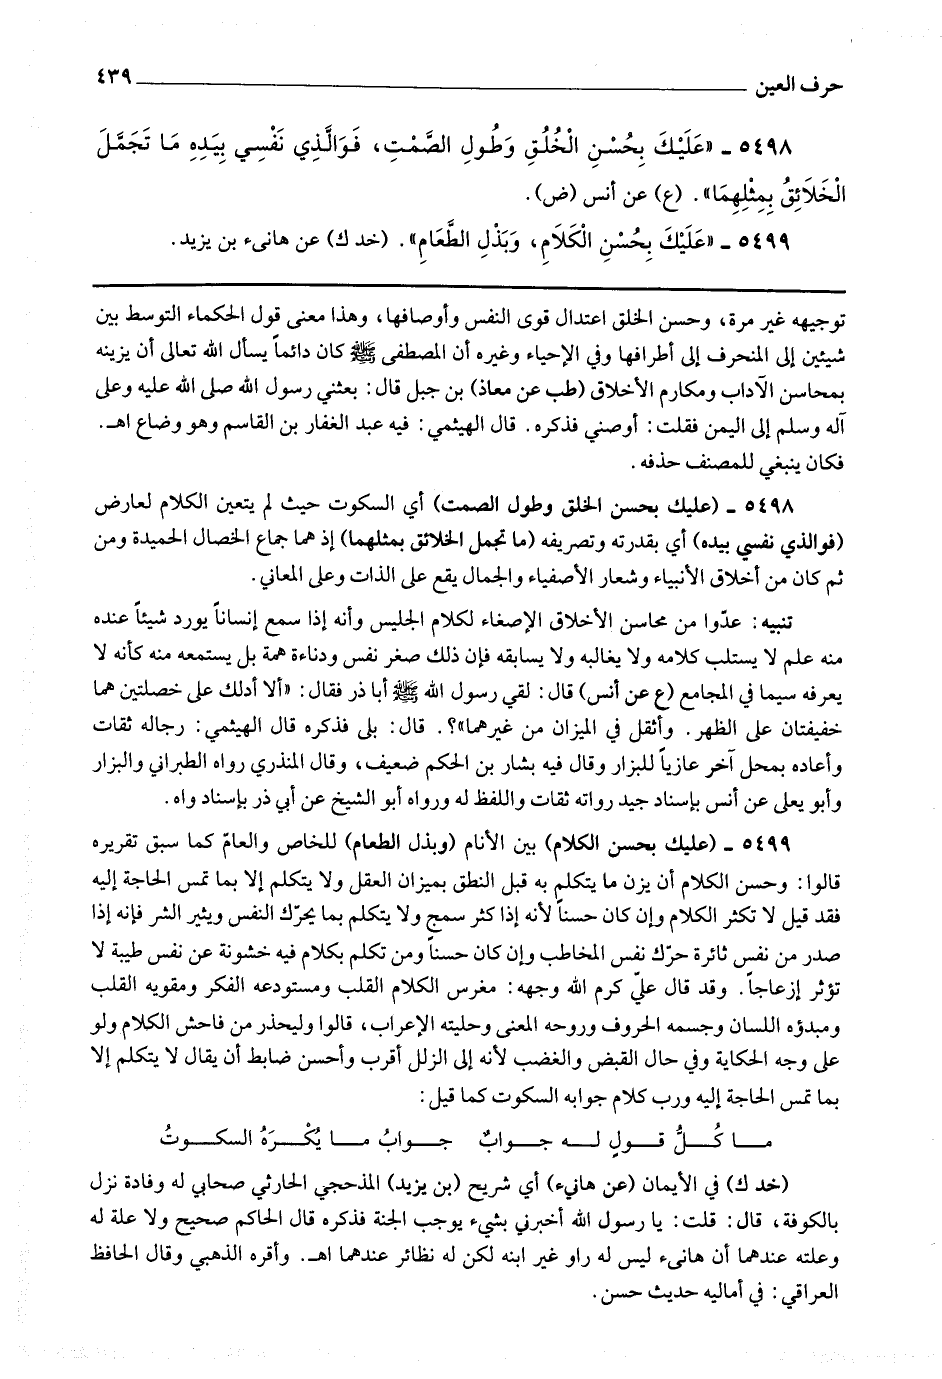 حرف العين ٤٣٩
٥٤٩٨ ـ «عَلَيْكَ بِحُسْنِ الْخُلُقِ وَطُولِ الصَّمْتِ، فَوَالَّذِي نَفْسِي بِيَدِهِ مَا تَجَمَّلَ
الْخَلَائِقُ بِمِثْلِهِمَا». (ع) عن أنس (ض).
٥٤٩٩ ـ «عَلَيْكَ بِحُسْنِ الْكَلَامِ، وَبَذْلِ الطَّعَامِ». (خد ك) عن هانىء بن يزيد.
توجيهه غير مرة، وحسن الخلق اعتدال قوى النفس وأوصافها، وهذا معنى قول الحكماء التوسط بين
شيئين إلى المنحرف إلى أطرافها وفي الإحياء وغيره أن المصطفى ﷺ كان دائماً يسأل الله تعالى أن يزينه
بمحاسن الآداب ومكارم الأخلاق (طب عن معاذ) بن جبل قال: بعثني رسول الله صلى الله عليه وعلى
آله وسلم إلى اليمن فقلت: أوصني فذكره. قال الهيثمي: فيه عبد الغفار بن القاسم وهو وضاع اهـ.
فكان ينبغي للمصنف حذفه.
٥٤٩٨ ـ (عليك بحسن الخلق وطول الصمت) أي السكوت حيث لم يتعين الكلام لعارض
(فوالذي نفسي بيده) أي بقدرته وتصريفه (ما تجمل الخلائق بمثلهما) إذ هما جماع الخصال الحميدة ومن
ثم كان من أخلاق الأنبياء وشعار الأصفياء والجمال يقع على الذات وعلى المعاني.
تنبيه: عدّوا من محاسن الأخلاق الإصغاء لكلام الجليس وأنه إذا سمع إنساناً يورد شيئاً عنده
منه علم لا يستلب كلامه ولا يغالبه ولا يسابقه فإن ذلك صغر نفس ودناءة همة بل يستمعه منه كأنه لا
يعرفه سيما في المجامع (ع عن أنس) قال: لقي رسول الله ﷺ أبا ذر فقال: «ألا أدلك على خصلتين هما
خفيفتان على الظهر. وأثقل في الميزان من غيرهما»؟. قال: بلى فذكره قال الهيثمي: رجاله ثقات
وأعاده بمحل آخر عازياً للبزار وقال فيه بشار بن الحكم ضعيف، وقال المنذري رواه الطبراني والبزار
وأبو يعلى عن أنس بإسناد جيد رواته ثقات واللفظ له ورواه أبو الشيخ عن أبي ذر بإسناد واه.
٥٤٩٩ ـ (عليك بحسن الكلام) بين الأنام (وبذل الطعام) للخاص والعامّ كما سبق تقريره
قالوا: وحسن الكلام أن يزن ما يتكلم به قبل النطق بميزان العقل ولا يتكلم إلا بما تمس الحاجة إليه
فقد قيل لا تكثر الكلام وإن كان حسناً لأنه إذا كثر سمج ولا يتكلم بما يحرّك النفس ويثير الشر فإنه إذا
صدر من نفس ثائرة حرّك نفس المخاطب وإن كان حسناً ومن تكلم بكلام فيه خشونة عن نفس طيبة لا
تؤثر إزعاجاً. وقد قال عليّ كرم الله وجهه: مغرس الكلام القلب ومستودعه الفكر ومقويه القلب
ومبدؤه اللسان وجسمه الحروف وروحه المعنى وحليته الإعراب، قالوا وليحذر من فاحش الكلام ولو
على وجه الحكاية وفي حال القبض والغضب لأنه إلى الزلل أقرب وأحسن ضابط أن يقال لا يتكلم إلا
بما تمس الحاجة إليه ورب كلام جوابه السكوت كما قيل:
مـا كُـلُّ قـولٍ لـه جـوابٌ جـوابُ مـا يُكْـرَهُ السكـوتُ
(خد ك) في الأيمان (عن هانيء) أي شريح (بن يزيد) المذحجي الحارثي صحابي له وفادة نزل
بالكوفة، قال: قلت: يا رسول الله أخبرني بشيء يوجب الجنة فذكره قال الحاكم صحيح ولا علة له
وعلته عندهما أن هانىء ليس له راو غير ابنه لكن له نظائر عندهما اهـ. وأقره الذهبي وقال الحافظ
العراقي: في أماليه حديث حسن.